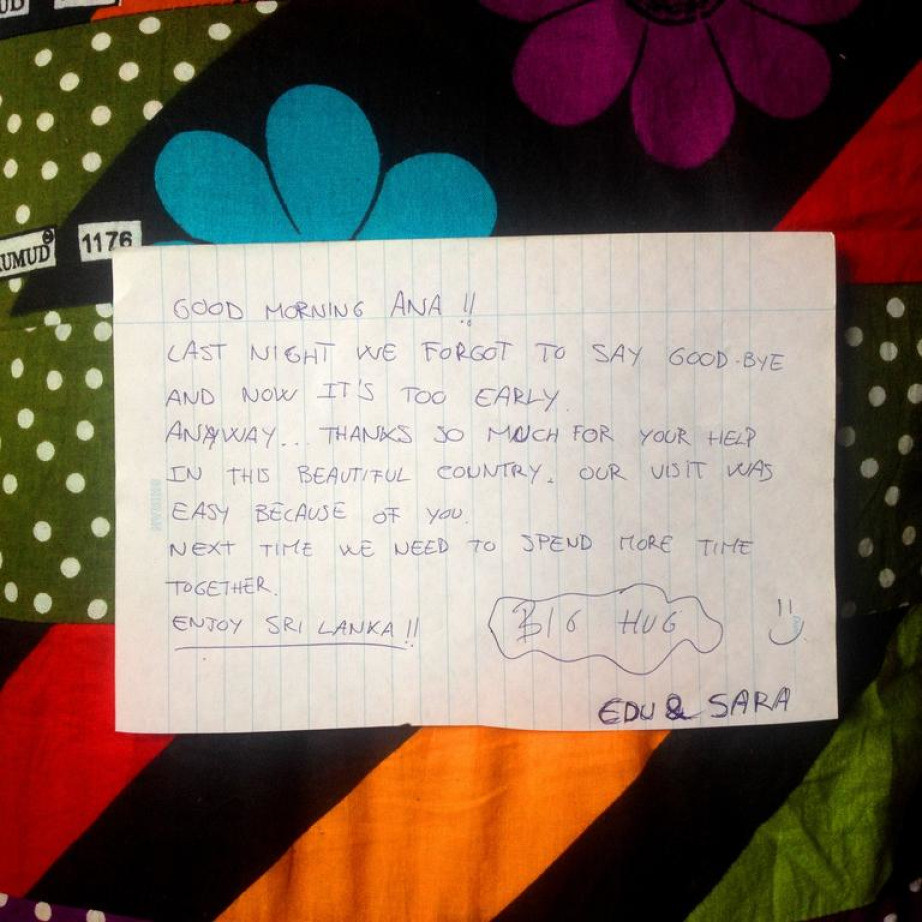 UMUD
1176
GOOD MORNING ANA !!
LAST NIGHT WE FORGOT TO SAY GOOD-BYE
AND NOW IT'S TOO EARLY.
ANYWAY... THANKS SO MUCH FOR YOUR HELP
IN THIS BEAUTIFUL COUNTRY. OUR VISIT WAS
EASY BECAUSE OF YOU.
NEXT TIME WE NEED TO SPEND MORE TIME
TOGETHER.
ENJOY SRI LANKA !!
BIG HUG
EDU & SARA